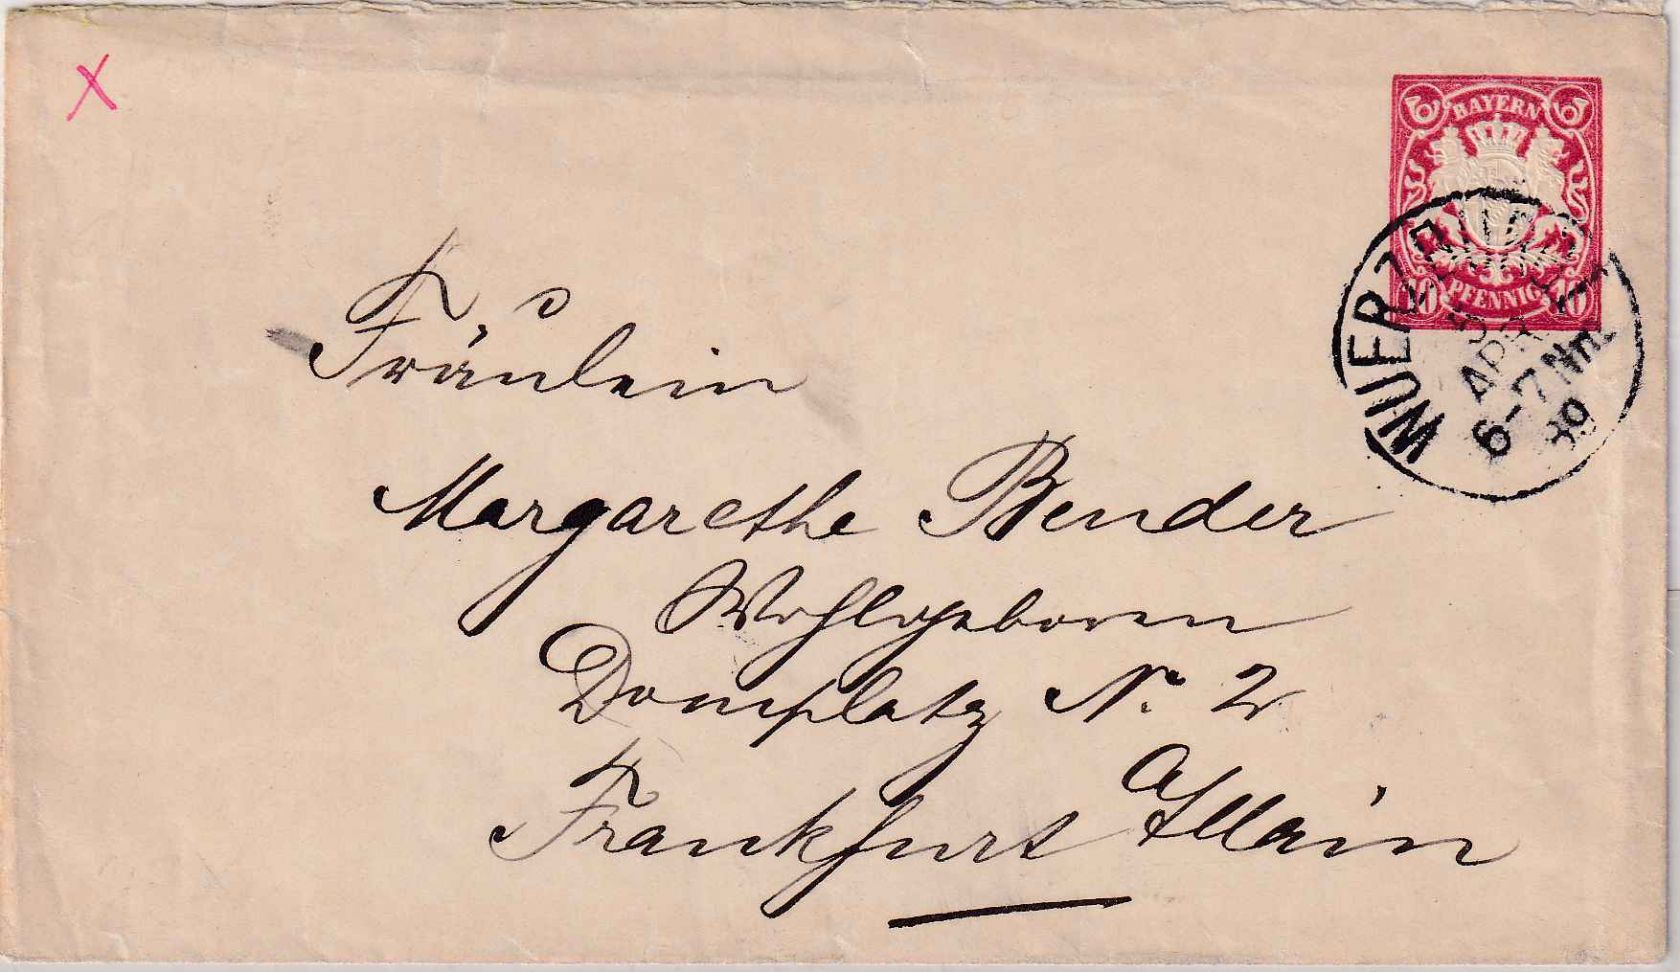 X
BAYERN
PFENNIG
10 10
WUERZBURG
APR
6-7 Nm.
89
Fräulein
Margarethe Bender
Wohlgeboren
Domplatz No. 2
Frankfurt a/Main